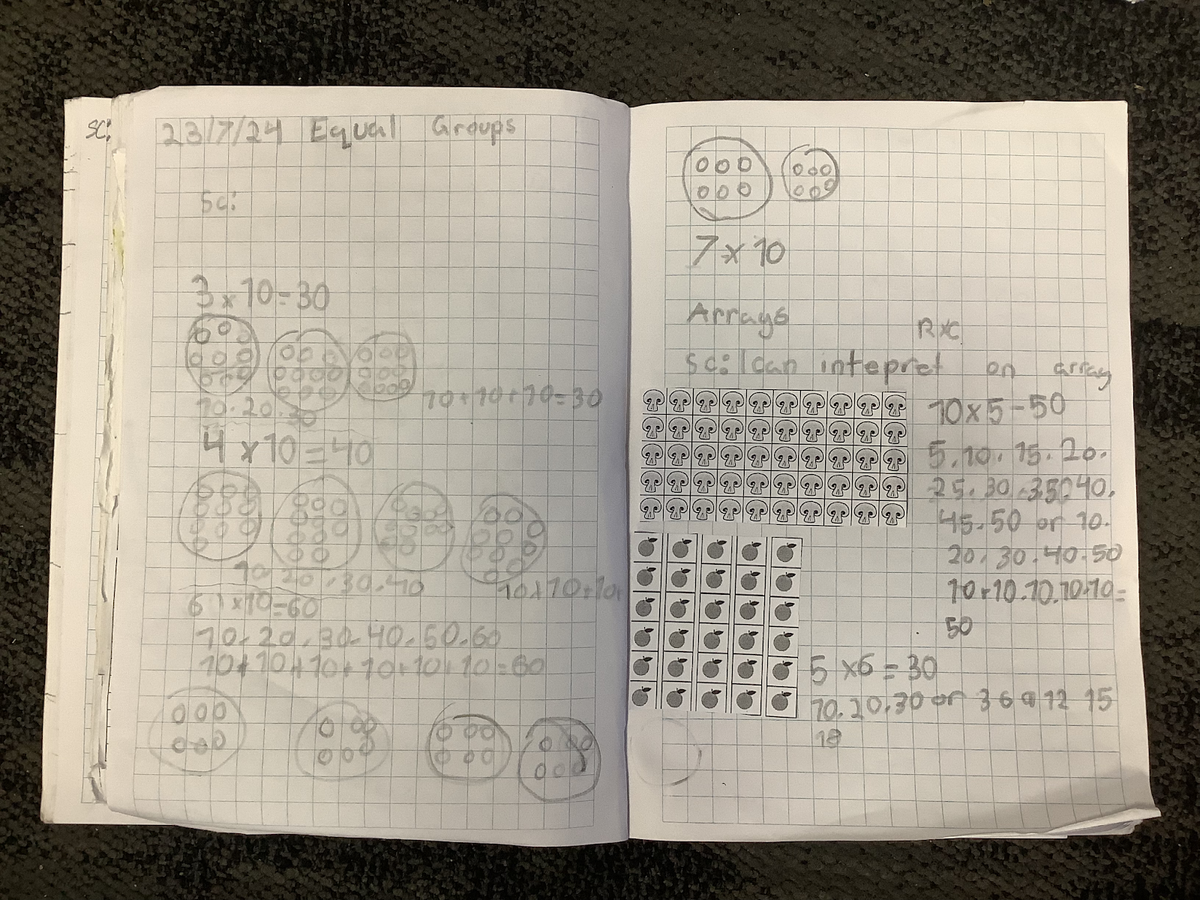 SC:
23/7/24 Equal Groups
Sc:
3 x 10 = 30
10 + 10 + 10 = 30
10. 20. 30
4 x 10 = 40
10. 20. 30. 40
10 + 10 + 10 +
6 x 10 = 60
10. 20. 30. 40. 50. 60
10 + 10 + 10 + 10 + 10 + 10 = 60
7 x 10
Arrays
RxC
Sc: I can intepret on array
10 x 5 = 50
5. 10. 15. 20.
25. 30. 35. 40.
45. 50 or 10.
20. 30. 40. 50
10 + 10. 10. 10. 10 =
50
5 x 6 = 30
10. 20. 30 or 3 6 9 12 15
18